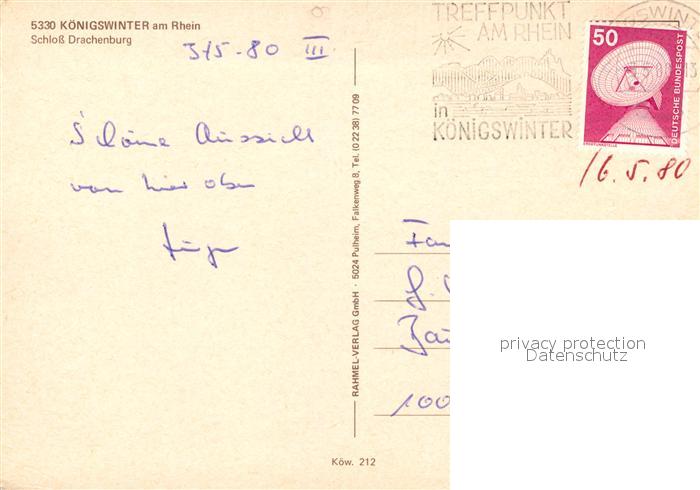 5330 KÖNIGSWINTER am Rhein
Schloß Drachenburg
3/5-80 III
Schöne Aussicht
von hier oben
Jürgen
RAHMEL-VERLAG GmbH · 5024 Pulheim, Falkenweg 8, Tel. (0 22 38) 77 09
Köw. 212
TREFFPUNKT
AM RHEIN
in
KÖNIGSWINTER
50
DEUTSCHE BUNDESPOST
ERDFUNKSTELLE
16.5.80
Fam
100
privacy protection
Datenschutz